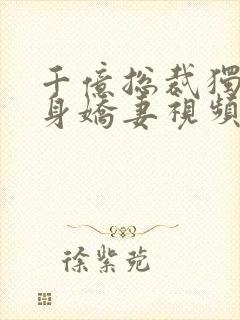 千億总裁獨
身嬌妻視頻
徐紫菀